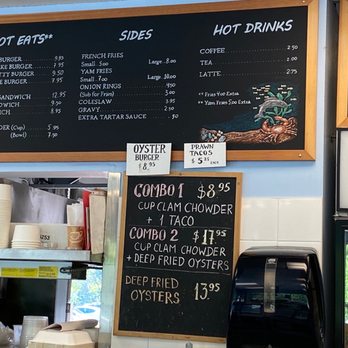 OT EATS**
BURGER 9.95
KE BURGER 7.95
TY BURGER 9.50
E BURGER 7.95
SANDWICH 12.95
DWICH 9.50
ICH 8.50
DER (Cup) 5.95
(Bowl) 7.50
SIDES
FRENCH FRIES
Small 5.00 Large 8.00
YAM FRIES
Small 7.00 Large 10.00
ONION RINGS
(Sub for Fries)
COLESLAW
GRAVY
EXTRA TARTAR SAUCE
HOT DRINKS
COFFEE 2.50
TEA
LATTE 3.75
* Fries
** Yam Fries Extra
OYSTER
BURGER
$8.95
PRAWN
TACOS
COMBO 1 $8.95
CUP CLAM CHOWDER
+ 1 TACO
COMBO 2 $17.95
CUP CLAM CHOWDER
+ DEEP FRIED OYSTERS
DEEP FRIED
OYSTERS 13.95